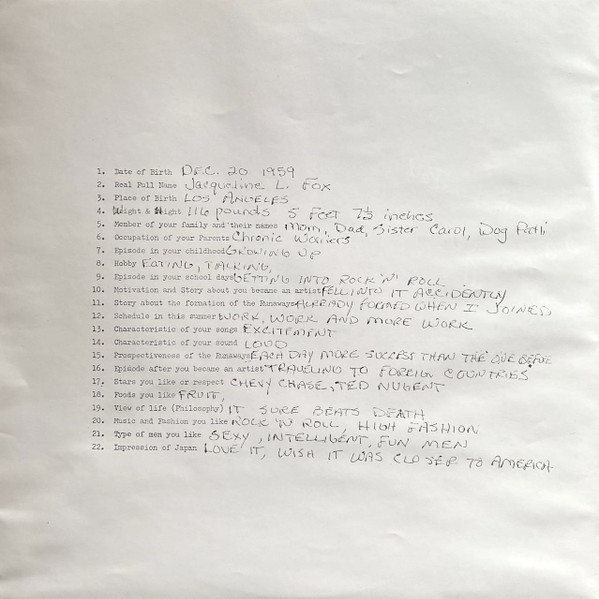 1. Date of Birth DEC. 20 1959
2. Real Full Name Jacqueline L. Fox
3. Place of Birth LOS ANGELES
4. Weight & Hight 116 pounds 5 feet 7½ inches
5. Member of your family and their names Mom, Dad, Sister Carol, Dog
6. Occupation of your Parents Chronic Worriers
7. Episode in your childhood GROWING UP
8. Hobby EATING, TALKING,
9. Episode in your school days GETTING INTO ROCK 'N' ROLL.
10. Motivation and Story about you became an artist FELL INTO IT ACCIDENTLY
11. Story about the formation of the Runaways ALREADY FORMED WHEN I JOINED
12. Schedule in this summer WORK, WORK AND MORE WORK
13. Characteristic of your songs EXCITEMENT
14. Characteristic of your sound LOUD
15. Prospectiveness of the Runaways EACH DAY MORE SUCCESS THAN THE ONE BEFORE
16. Episode after you became an artist TRAVELING TO FOREIGN COUNTRIES
17. Stars you like or respect CHEVY CHASE, TED NUGENT
18. Foods you like FRUIT,
19. View of life (Philosophy) IT SURE BEATS DEATH
20. Music and Fashion you like ROCK 'N ROLL, HIGH FASHION
21. Type of men you like SEXY, INTELLIGENT, FUN MEN
22. Impression of Japan LOVE IT, WISH IT WAS CLOSER TO AMERICA